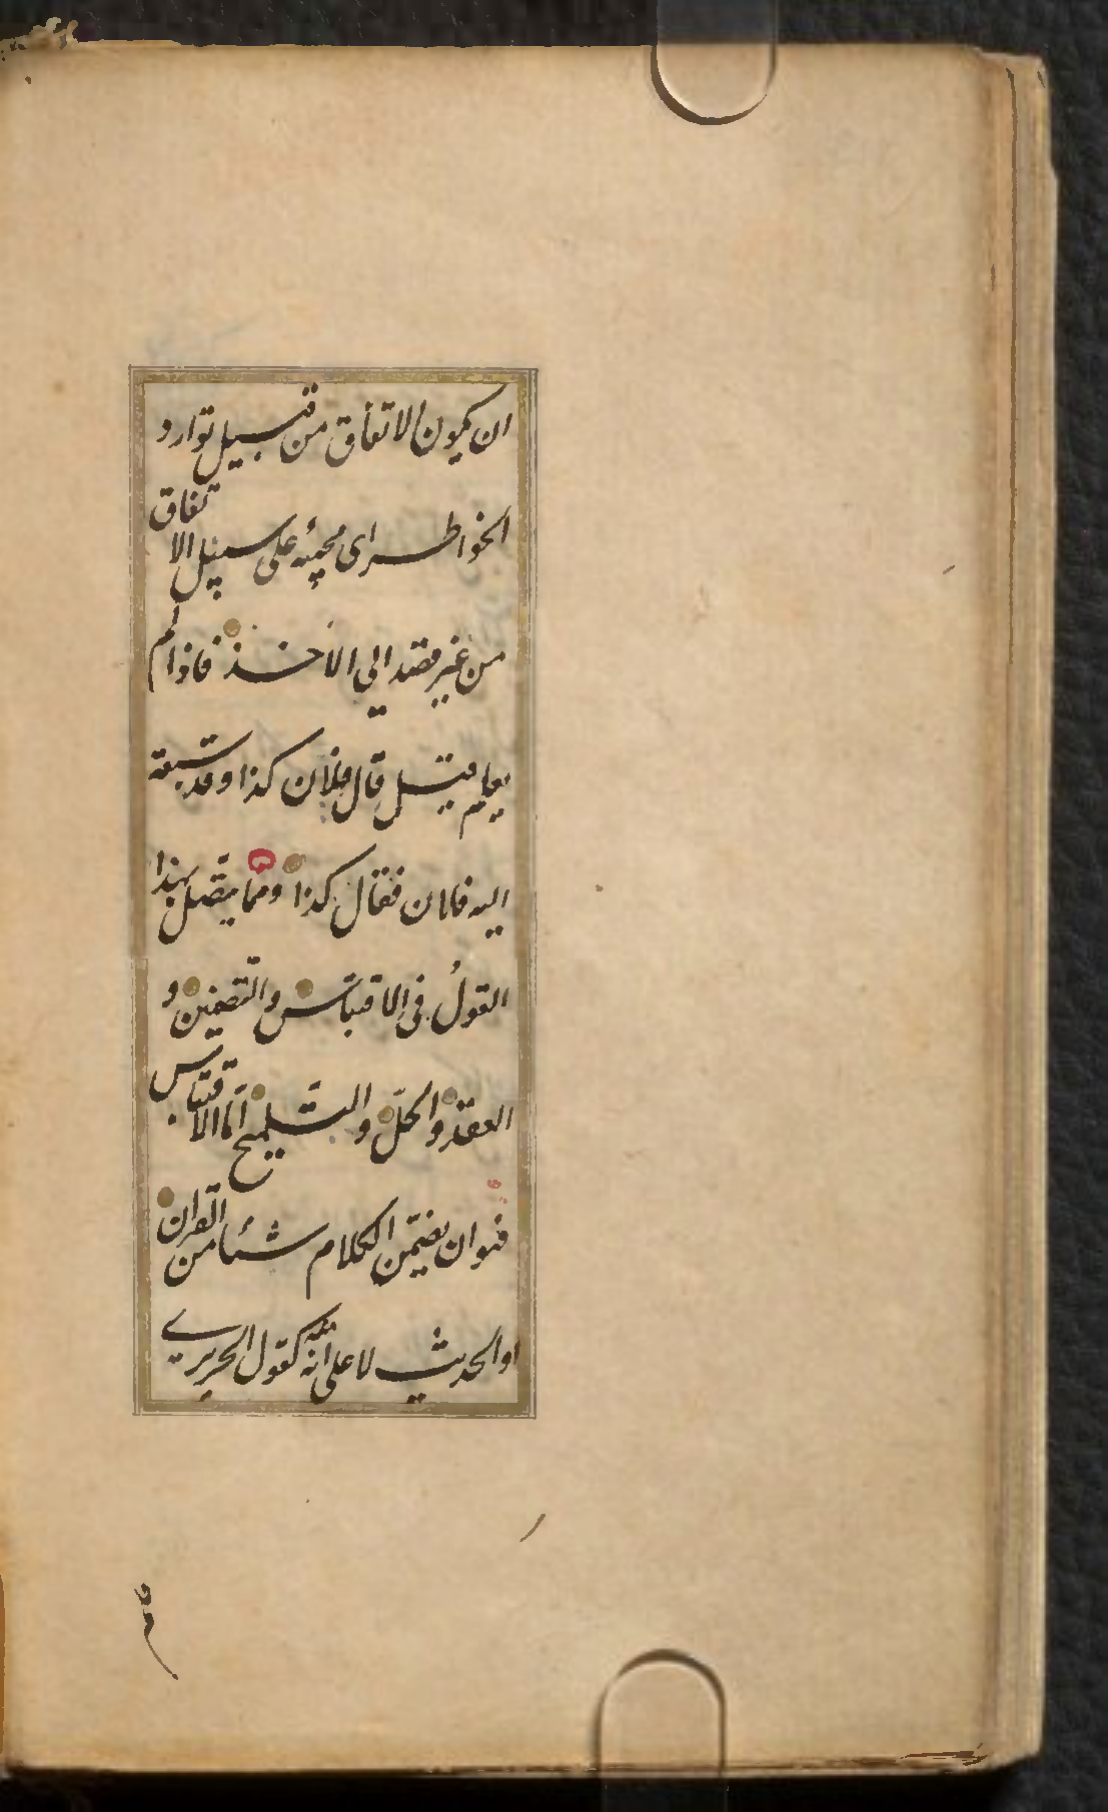 ان يكون الاتفاق من قبيل توارد
الخواطر اى مجيئه على سبيل الاتفاق
من غير قصد الي الاخذ فاذا لم
يعلم قيل قال فلان كذا وقد سبقه
اليه فلان فقال كذا ومما يتصل بهذا
القولُ فى الاقتباس والتضمين و
العقد والحلّ والتلميح امّا الاقتباس
فهو ان يضمّن الكلام شئا من القران
او الحديث لا على انه منه كقول الحريرى